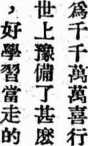 爲千千萬萬喜行
世上豫備了甚麽
，好學習當走的